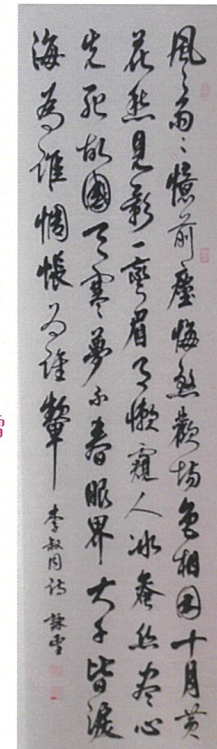 風〻雨〻憶前塵悔煞歡場色相因十月黃
花愁見影一彎眉月懶窺人冰蚕丝尽心
先死故國天寒夢不春眼界大千皆淚
海為誰惆悵為誰颦
李叔同詩 詠雪